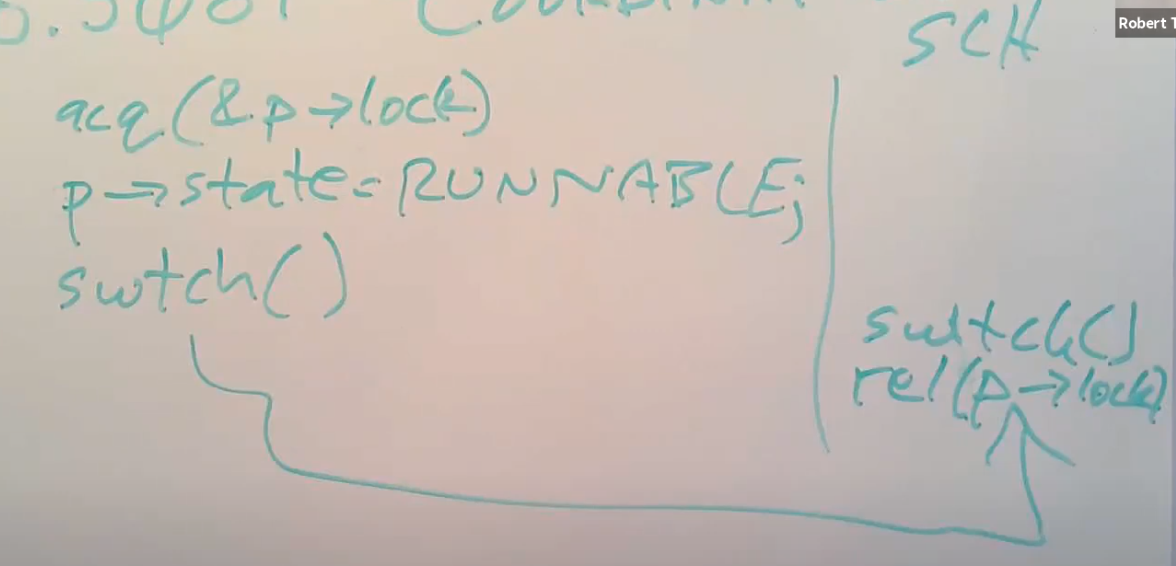 Robert T
SCH
acq(&p→lock)
p→state=RUNNABLE;
swtch()
swtch()
rel(p→lock)